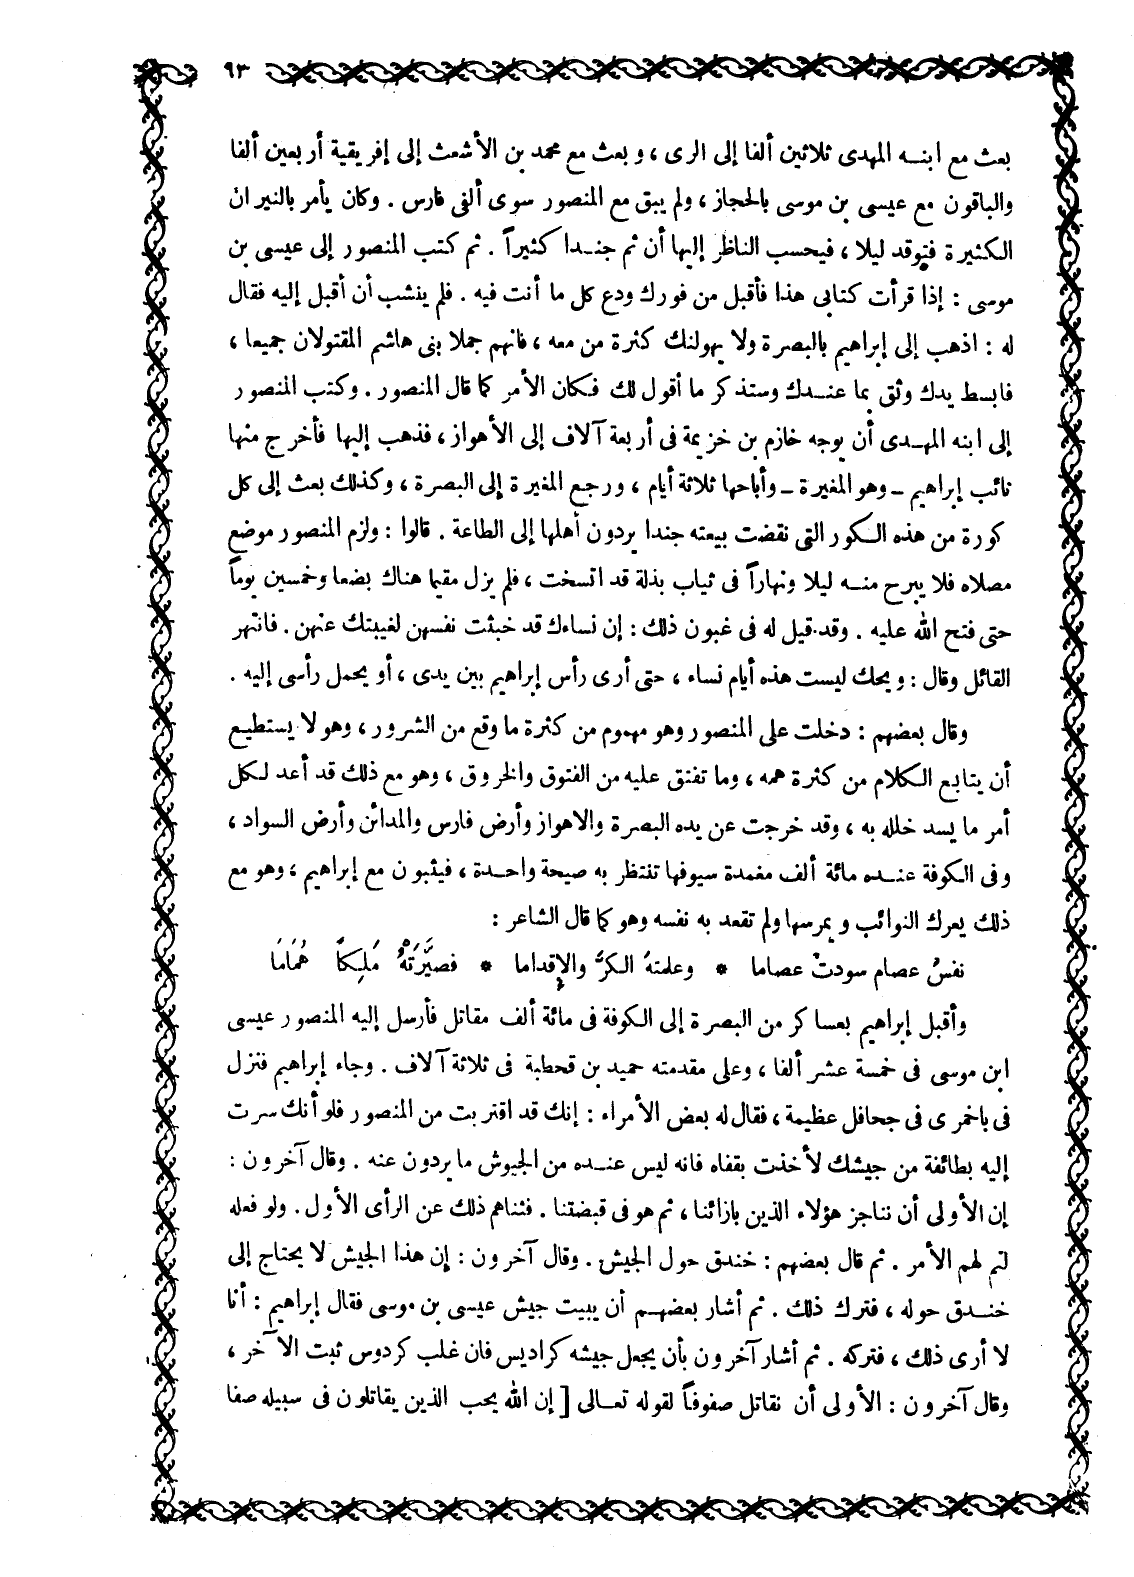 ٩٣
بعث مع ابنه المهدى ثلاثين ألفا إلى الرى ، وبعث مع محمد بن الأشعث إلى إفريقية أربعين ألفا
والباقون مع عيسى بن موسى بالحجاز ، ولم يبق مع المنصور سوى ألفى فارس . وكان يأمر بالنيران
الكثيرة فتوقد ليلا ، فيحسب الناظر إليها أن ثم جندا كثيراً . ثم كتب المنصور إلى عيسى بن
موسى : إذا قرأت كتابى هذا فأقبل من فورك ودع كل ما أنت فيه . فلم ينشب أن أقبل إليه فقال
له : اذهب إلى إبراهيم بالبصرة ولا يهولنك كثرة من معه ، فانهم جملا بنى هاشم المقتولان جميعا ،
فابسط يدك وثق بما عندك وستذكر ما أقول لك فكان الأمر كما قال المنصور . وكتب المنصور
إلى ابنه المهدى أن يوجه خازم بن خزيمة فى أربعة آلاف إلى الأهواز ، فذهب إليها فأخرج منها
نائب إبراهيم ــ وهو المغيرة ــ وأباحها ثلاثة أيام ، ورجع المغيرة إلى البصرة ، وكذلك بعث إلى كل
كورة من هذه الكور التى نقضت بيعته جندا يردون أهلها إلى الطاعة . قالوا : ولزم المنصور موضع
مصلاه فلا يبرح منه ليلا ونهاراً فى ثياب بذلة قد اتسخت ، فلم يزل مقيما هناك بضعا وخمسين يوماً
حتى فتح الله عليه . وقد قيل له فى غبون ذلك : إن نساءك قد خبثت نفسهن لغيبتك عنهن . فانتهر
القائل وقال : ويحك ليست هذه أيام نساء ، حتى أرى رأس إبراهيم بين يدى ، أو يحمل رأسى إليه .
وقال بعضهم : دخلت على المنصور وهو مهموم من كثرة ما وقع من الشرور ، وهو لا يستطيع
أن يتابع الكلام من كثرة همه ، وما تفتق عليه من الفتوق والخروق ، وهو مع ذلك قد أعد لكل
أمر ما يسد خلله به ، وقد خرجت عن يده البصرة والاهواز وأرض فارس والمدائن وأرض السواد ،
وفى الكوفة عنده مائة ألف مغمدة سيوفها تنتظر به صيحة واحدة ، فيثبون مع إبراهيم ، وهو مع
ذلك يعرك النوائب ويمرسها ولم تقعد به نفسه وهو كما قال الشاعر :
نفسُ عصام سودتْ عصاما * وعلمتهُ الكرَّ والإقداما * فصيَّرَتْهُ مَلِيكاً هُمَامَا
وأقبل إبراهيم بعساكر من البصرة إلى الكوفة فى مائة ألف مقاتل فأرسل إليه المنصور عيسى
ابن موسى فى خمسة عشر ألفا ، وعلى مقدمته حميد بن قحطبة فى ثلاثة آلاف . وجاء إبراهيم فنزل
فى باخمرى فى جحافل عظيمة ، فقال له بعض الأمراء : إنك قد اقتربت من المنصور فلو أنك سرت
إليه بطائفة من جيشك لأخذت بقفاه فانه ليس عنده من الجيوش ما يردون عنه . وقال آخرون :
إن الأولى أن نناجز هؤلاء الذين بازائنا ، ثم هو فى قبضتنا . فثناهم ذلك عن الرأى الأول . ولو فعله
لتم لهم الأمر . ثم قال بعضهم : خندق حول الجيش . وقال آخرون : إن هذا الجيش لا يحتاج إلى
خندق حوله ، فترك ذلك . ثم أشار بعضهم أن يبيت جيش عيسى بن موسى فقال إبراهيم : أنا
لا أرى ذلك ، فتركه . ثم أشار آخرون بأن يجعل جيشه كراديس فان غلب كردوس ثبت الآخر ،
وقال آخرون : الأولى أن نقاتل صفوفاً لقوله تعالى [ إن الله يحب الذين يقاتلون فى سبيله صفا